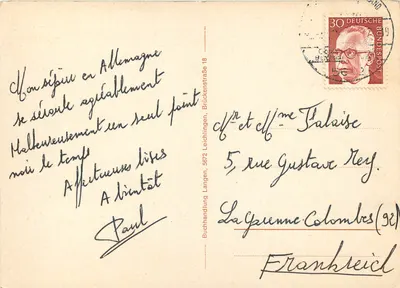 Mon séjour en Allemagne
se déroule agréablement
Malheureusement un seul point
noir le temps
Affectueuses bises
A bientôt
Paul
Buchhandlung Langen, 5672 Leichlingen, Brückenstraße 18
30 DEUTSCHE
BUNDESPOST
Mr et Mme Falaise
5, rue Gustave Rey.
La Garenne Colombes (92)
Frankreich